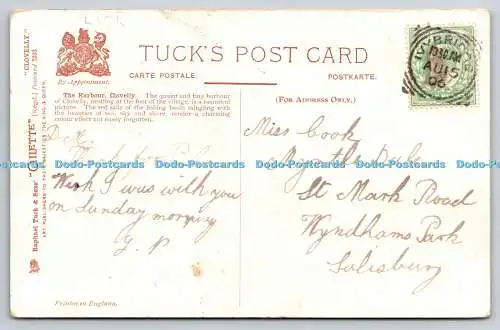 LILK
"CLOVELLY"
(Regd.) Postcard
Raphael Tuck & Sons' "OILETTE"
ART PUBLISHERS TO THEIR MAJESTIES THE KING & QUEEN.
By Appointment.
TUCK'S POST CARD
CARTE POSTALE.
POSTKARTE.
The Harbour, Clovelly. The quaint and tiny harbour
of Clovelly, nestling at the foot of the village, is a beautiful
picture. The red sails of the fishing boats mingling with
the beauties of sea, sky and shore, render a charming
colour effect not easily forgotten.
(FOR ADDRESS ONLY.)
Wish I was with you
on Sunday morning
Miss Cook
St Mark Road
Wyndhams Park
Salisbury
AU 15
Dodo-Postcards Dodo-Postcards Dodo-Postcards Dodo-Postcards
Printed in England.